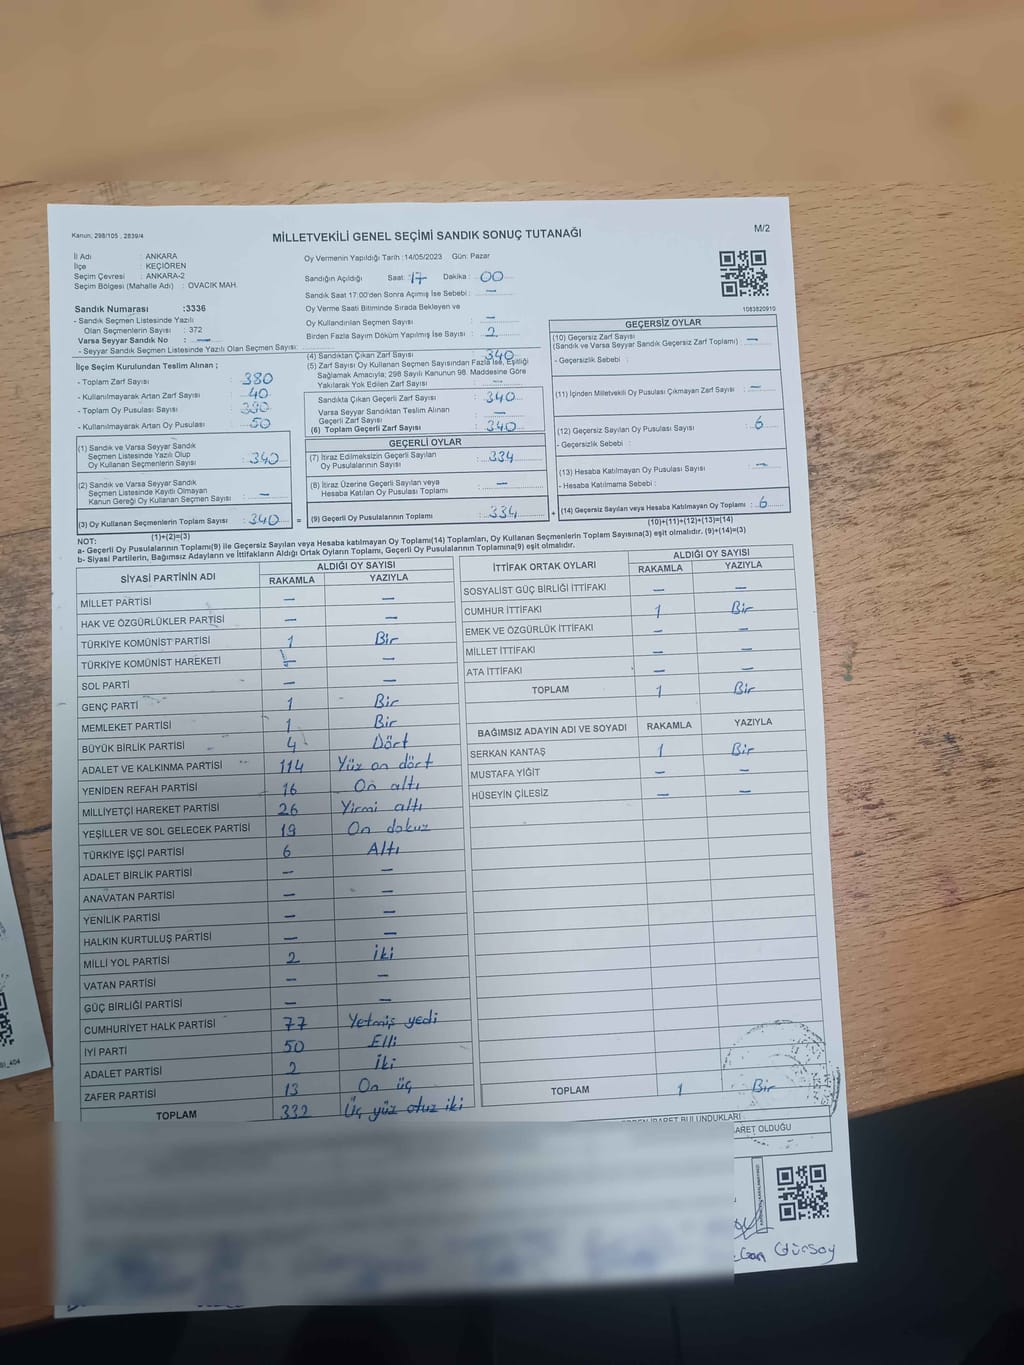 Kanun; 298/105 , 2839/4
MİLLETVEKİLİ GENEL SEÇİMİ SANDIK SONUÇ TUTANAĞI
M/2
İl Adı : ANKARA
İlçe : KEÇİÖREN
Seçim Çevresi : ANKARA-2
Seçim Bölgesi (Mahalle Adı) : OVACIK MAH.
Sandık Numarası :3336
- Sandık Seçmen Listesinde Yazılı
Olan Seçmenlerin Sayısı : 372
Varsa Seyyar Sandık No : —
- Seyyar Sandık Seçmen Listesinde Yazılı Olan Seçmen Sayısı:
İlçe Seçim Kurulundan Teslim Alınan ;
- Toplam Zarf Sayısı : 380
- Kullanılmayarak Artan Zarf Sayısı : 40
- Toplam Oy Pusulası Sayısı :
- Kullanılmayarak Artan Oy Pusulası : 50
(1) Sandık ve Varsa Seyyar Sandık
Seçmen Listesinde Yazılı Olup
Oy Kullanan Seçmenlerin Sayısı : 340
(2) Sandık ve Varsa Seyyar Sandık
Seçmen Listesinde Kayıtlı Olmayan
Kanun Gereği Oy Kullanan Seçmen Sayısı : —
(3) Oy Kullanan Seçmenlerin Toplam Sayısı : 340
(1)+(2)=(3)
Oy Vermenin Yapıldığı Tarih :14/05/2023 Gün: Pazar
Sandığın Açıldığı Saat: 17 Dakika : 00
Sandık Saat 17:00'den Sonra Açımış İse Sebebi : —
Oy Verme Saati Bitiminde Sırada Bekleyen ve
Oy Kullandırılan Seçmen Sayısı : —
Birden Fazla Sayım Döküm Yapılmış İse Sayısı : 2
(4) Sandıktan Çıkan Zarf Sayısı : 340
(5) Zarf Sayısı Oy Kullanan Seçmen Sayısından Fazla İse, Eşitliği
Sağlamak Amacıyla; 298 Sayılı Kanunun 98. Maddesine Göre
Yakılarak Yok Edilen Zarf Sayısı : —
Sandıkta Çıkan Geçerli Zarf Sayısı : 340
Varsa Seyyar Sandıktan Teslim Alınan
Geçerli Zarf Sayısı : —
(6) Toplam Geçerli Zarf Sayısı : 340
GEÇERLİ OYLAR
(7) İtiraz Edilmeksizin Geçerli Sayılan
Oy Pusulalarının Sayısı : 334
(8) İtiraz Üzerine Geçerli Sayılan veya
Hesaba Katılan Oy Pusulası Toplamı : —
= (9) Geçerli Oy Pusulalarının Toplamı : 334
1083820910
GEÇERSİZ OYLAR
(10) Geçersiz Zarf Sayısı
(Sandık ve Varsa Seyyar Sandık Geçersiz Zarf Toplamı) : —
- Geçersizlik Sebebi :
(11) İçinden Milletvekili Oy Pusulası Çıkmayan Zarf Sayısı : —
(12) Geçersiz Sayılan Oy Pusulası Sayısı : 6
- Geçersizlik Sebebi :
(13) Hesaba Katılmayan Oy Pusulası Sayısı : —
- Hesaba Katılmama Sebebi :
+ (14) Geçersiz Sayılan veya Hesaba Katılmayan Oy Toplamı : 6
(10)+(11)+(12)+(13)=(14)
NOT:
a- Geçerli Oy Pusulalarının Toplamı(9) ile Geçersiz Sayılan veya Hesaba katılmayan Oy Toplamı(14) Toplamları, Oy Kullanan Seçmenlerin Toplam Sayısına(3) eşit olmalıdır. (9)+(14)=(3)
b- Siyasi Partilerin, Bağımsız Adayların ve İttifakların Aldığı Ortak Oyların Toplamı, Geçerli Oy Pusulalarının Toplamına(9) eşit olmalıdır.
SİYASİ PARTİNİN ADI ALDIĞI OY SAYISI
RAKAMLA YAZIYLA
MİLLET PARTİSİ — —
HAK VE ÖZGÜRLÜKLER PARTİSİ — —
TÜRKİYE KOMÜNİST PARTİSİ 1 Bir
TÜRKİYE KOMÜNİST HAREKETİ — —
SOL PARTİ — —
GENÇ PARTİ 1 Bir
MEMLEKET PARTİSİ 1 Bir
BÜYÜK BİRLİK PARTİSİ 4 Dört
ADALET VE KALKINMA PARTİSİ 114 Yüz on dört
YENİDEN REFAH PARTİSİ 16 On altı
MİLLİYETÇİ HAREKET PARTİSİ 26 Yirmi altı
YEŞİLLER VE SOL GELECEK PARTİSİ 19 On dokuz
TÜRKİYE İŞÇİ PARTİSİ 6 Altı
ADALET BİRLİK PARTİSİ — —
ANAVATAN PARTİSİ — —
YENİLİK PARTİSİ — —
HALKIN KURTULUŞ PARTİSİ — —
MİLLİ YOL PARTİSİ 2 İki
VATAN PARTİSİ — —
GÜÇ BİRLİĞİ PARTİSİ — —
CUMHURİYET HALK PARTİSİ 77 Yetmiş yedi
İYİ PARTİ 50 Elli
ADALET PARTİSİ 2 İki
ZAFER PARTİSİ 13 On üç
TOPLAM 332 Üç yüz otuz iki
İTTİFAK ORTAK OYLARI ALDIĞI OY SAYISI
RAKAMLA YAZIYLA
SOSYALİST GÜÇ BİRLİĞİ İTTİFAKI — —
CUMHUR İTTİFAKI 1 Bir
EMEK VE ÖZGÜRLÜK İTTİFAKI — —
MİLLET İTTİFAKI — —
ATA İTTİFAKI — —
TOPLAM 1 Bir
BAĞIMSIZ ADAYIN ADI VE SOYADI RAKAMLA YAZIYLA
SERKAN KANTAŞ 1 Bir
MUSTAFA YİĞİT — —
HÜSEYİN ÇİLESİZ — —
TOPLAM 1 Bir
BULUNDUKLARI
OLDUĞU
Gürsoy